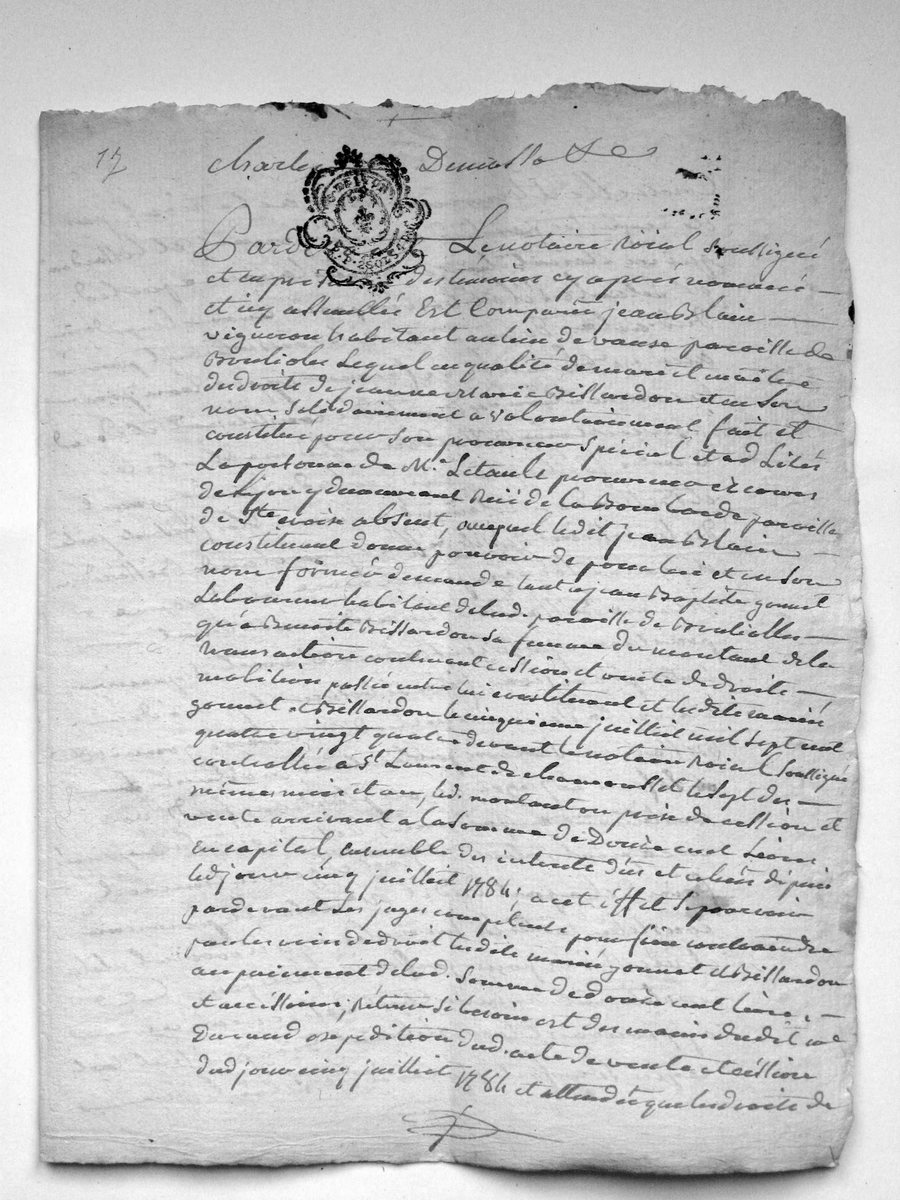 17
Charle Dumolla
Pard Le notaire Roial soussigné
et en pré des témoins cy après nommés
et icy assemblée Est Comparu jean Blain
vigneron habitant au lieu de vause paroisse de
lequel en qualité de mari et maître
des droits de jeanne Marie Billardon et en son
nom solidairement a volontairement fait et
constitué pour son procureur spécial et ad lites
La personne de Me Letault procureur ez cours
de Lyon y demeurant Rüe de la Bombarde paroisse
de Ste croix absent, auquel ledit jean Blain
constituant donne pouvoir de pour lui et en son
nom former demande tant a jean Baptiste gonnet
Laboureur habitant de lad. paroisse de
qu'a Benoite Billardon sa femme du montant de la
transaction contenant cession et vente de droits
mobiliers passée entre lui constituant et lesdits mariés
gonnet et Billardon le cinquieme juillet mil sept cent
quatre vingt quatre devant le notaire Roial soussigné
controllée a St Laurent de chamousset le sept des
mêmes mois et an, led. montant ou prix de cession et
vente arrivant a la somme de Douze cent Livres
en capital, ensemble des interets dus et echus depuis
led jour cinq juillet 1784; a cet éffet se pourvoir
pardevant les juges competents pour faire contraindre
par les voies de droit lesdits mariés gonnet et Billardon
au paiement de lad. somme de douze cent livres
et accessoires; Retirer si besoin est des mains dudit me
Durand expedition dud. acte de vente et céssion
dud jour cinq juillet 1784 et attendu que les droits de